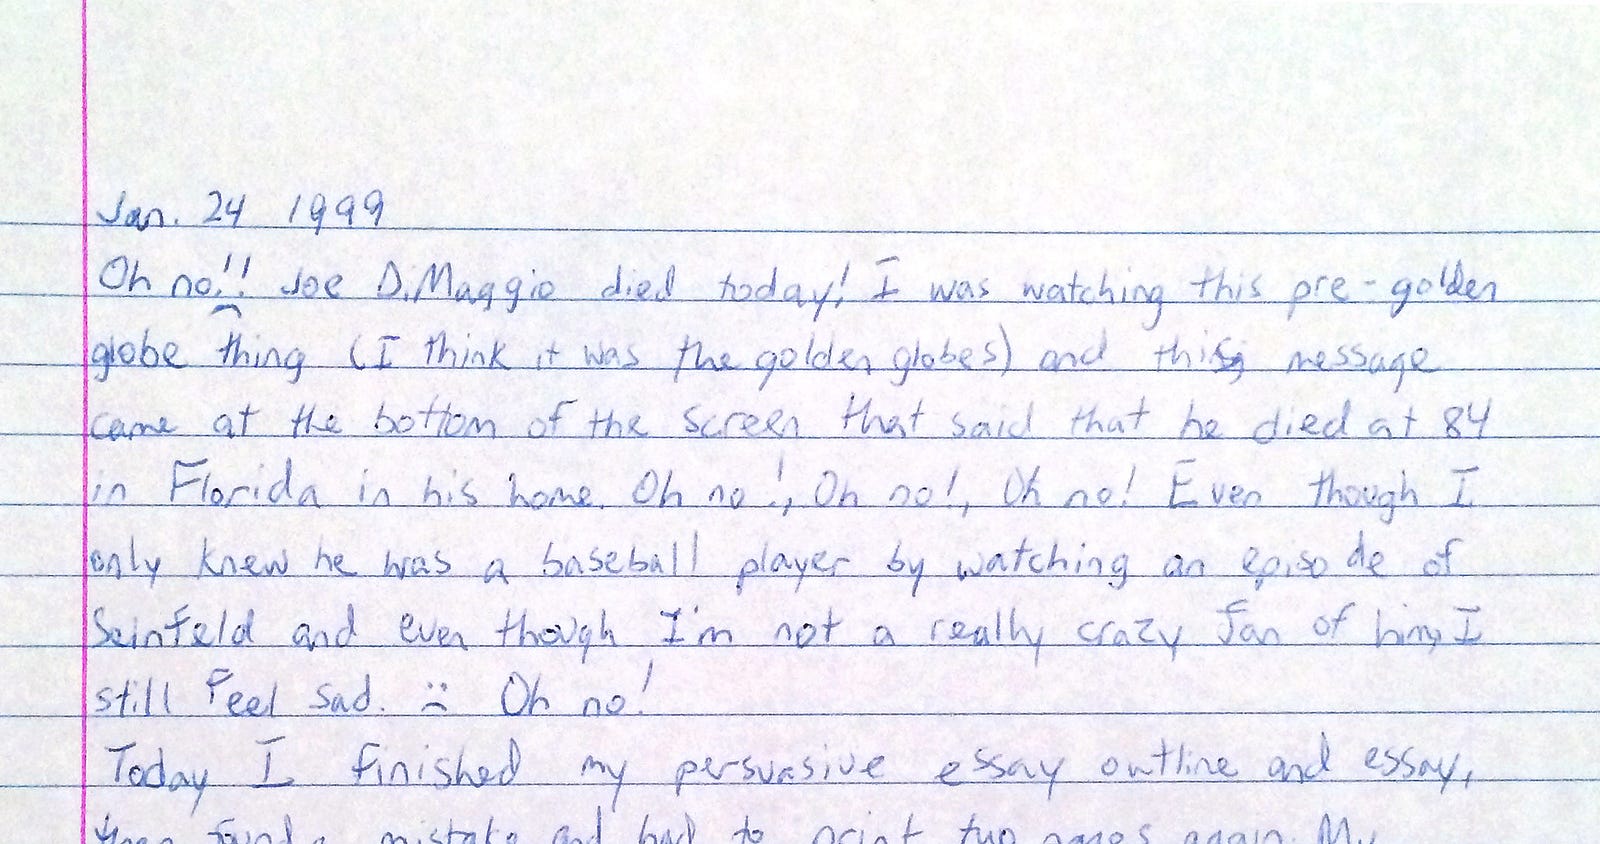 Jan. 24 1999
Oh no!! Joe DiMaggio died today! I was watching this pre-golden
globe thing (I think it was the golden globes) and this message
came at the bottom of the screen that said that he died at 84
in Florida in his home. Oh no!, Oh no!, Oh no! Even though I
only knew he was a baseball player by watching an episode of
Seinfeld and even though I'm not a really crazy fan of him, I
still feel sad. :( Oh no!
Today I finished my persuasive essay outline and essay,
then found a mistake and had to print two pages again. My